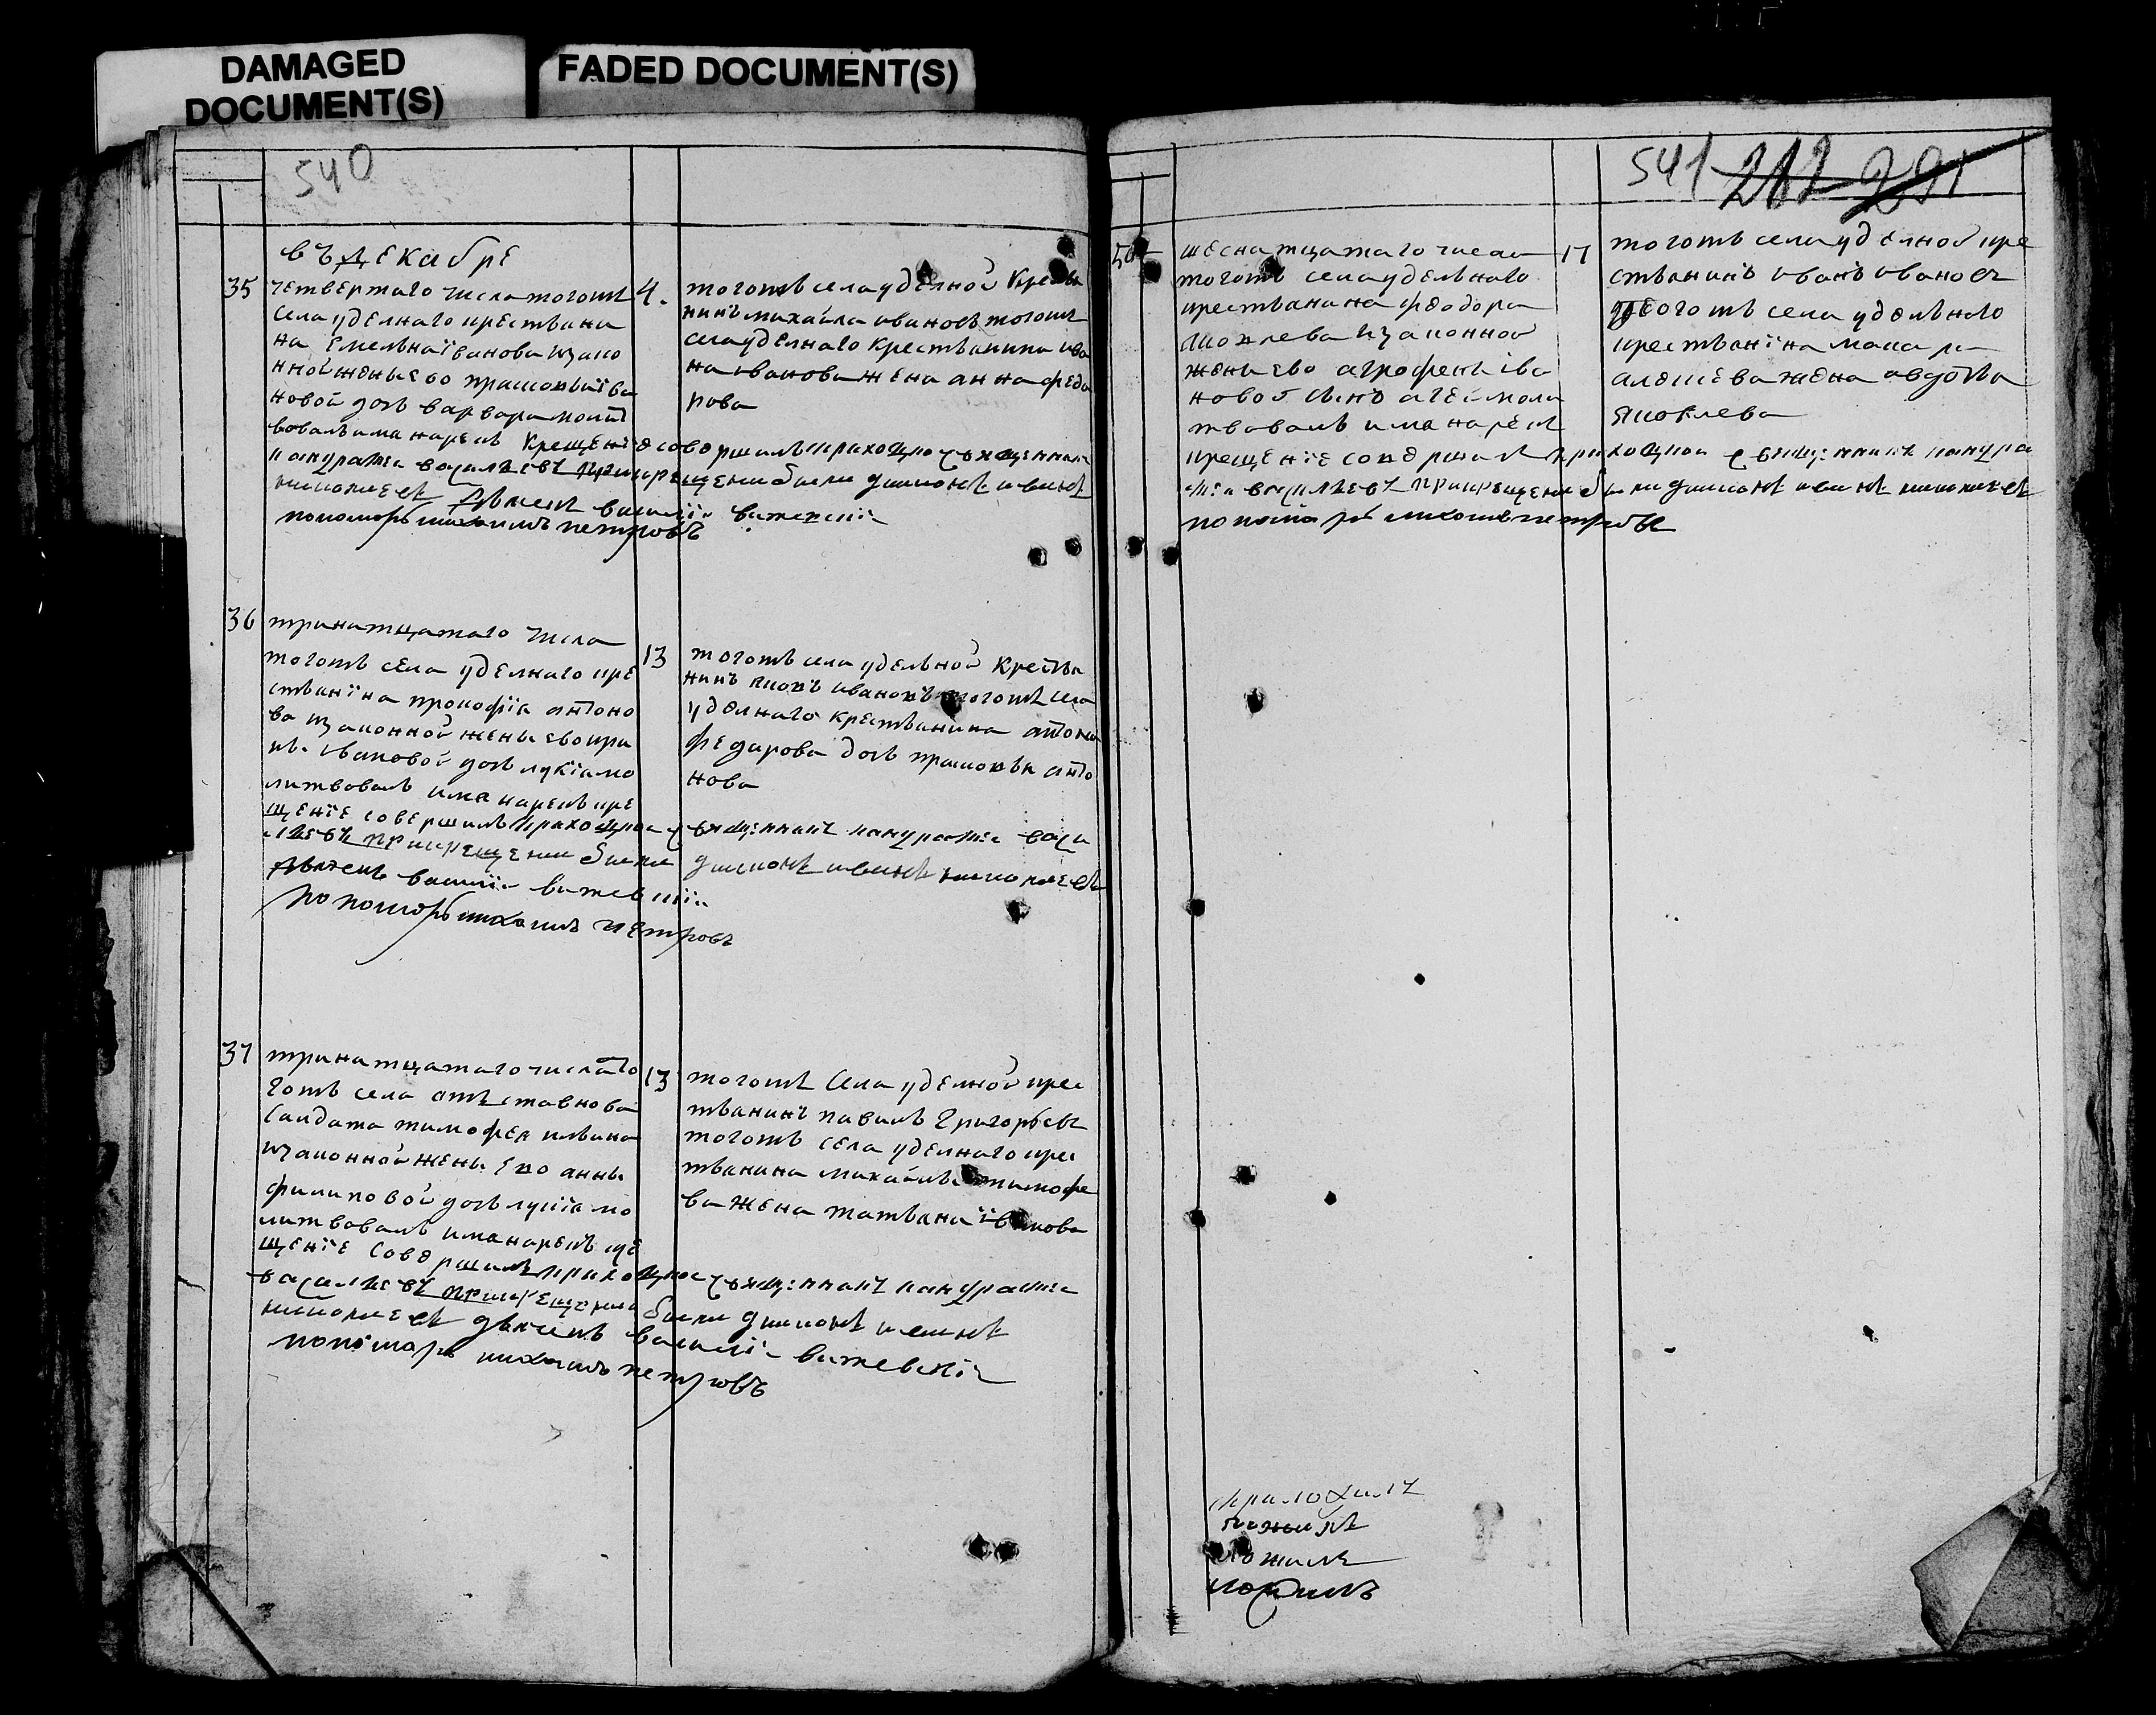 DAMAGED
DOCUMENT(S)
FADED DOCUMENT(S)
540
въ декабре
35
четвертаго числа тогоже
села уделнаго крестьяни
на Емельяна їванова изако
нной жены ево прасковьи їва
новой дочь варвара молит
вовалъ имя нарекъ крещенїе совершилъ приходцкой священникъ
панкратей васильевъ при крещении были дьяконъ
дьячекъ василїй
пономарь михаилъ петровъ
4.
тогожъ села уделной крестья
нинъ михайла ивановъ тогоже
села уделнаго крестьянина ива
на иванова жена анна феда
рова
36
тринатцатаго числа
тогожъ села уделнаго кре
стьянїна прокофїя антоно
ва изаконной жены ево ири
ны ївановой дочь лукїя мо
литвовалъ имя нарекъ кре
щенїе совершилъ приходцкой священникъ панкратей васи
льевъ при крещении были дьяконъ
дьячекъ василїй
пономарь михаилъ петровъ
13
тогожъ села удельной крестья
нинъ яковъ ивановъ тогоже села
уделнаго крестьянина антона
федарова дочь прасковья анто
нова
37
тринатцатаго числа то
гожъ села отставнова
салдата тимофея
изаконной жены ево анны
филиповой дочь лукїя мо
литвовалъ имя нарекъ кре
щенїе совершилъ приходцкой священникъ панкратей
васильевъ при крещении были дьяконъ
дьячекъ василїй
пономарь михаилъ петровъ
13
тогоже села уделной крес
тьянинъ павилъ григорьевъ
тогожъ села уделнаго крес
тьянина михайлы тимофе
ва жена татьяна їванова
541 212 291
шеснатцатаго числа
тогожъ села удельнаго
крестьянина феодора
яковлева изаконной
жены ево агрофены їва
новой сынъ агей моли
твовалъ имя нарекъ
крещенїе совершилъ приходцкой священникъ панкра
тей васильевъ при крещении были дьяконъ
пономарь михаилъ петровъ
17
тогожъ села уделной кре
стьянинъ иванъ ивановъ
тогожъ села удельнаго
крестьянїна макара
алексева жена авдотья
яковлева